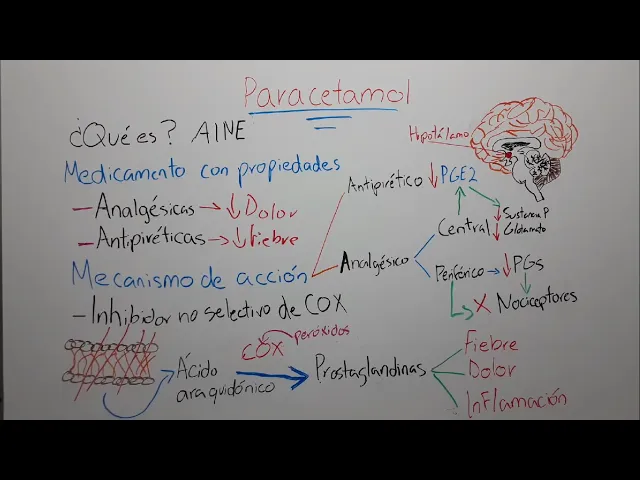 Paracetamol
¿Qué es? AINE
Medicamento con propiedades
- Analgésicas → ↓ Dolor
- Antipiréticas → ↓ Fiebre
Mecanismo de acción
- Inhibidor no selectivo de COX
Antipirético ↓ PGE2
Hipotálamo
Analgésico
Central
↓ Sustancia P
↓ Glutamato
Periférico → ↓ PGs
X Nociceptores
Ácido
araquidónico
COX
peróxidos
Prostaglandinas
Fiebre
Dolor
Inflamación